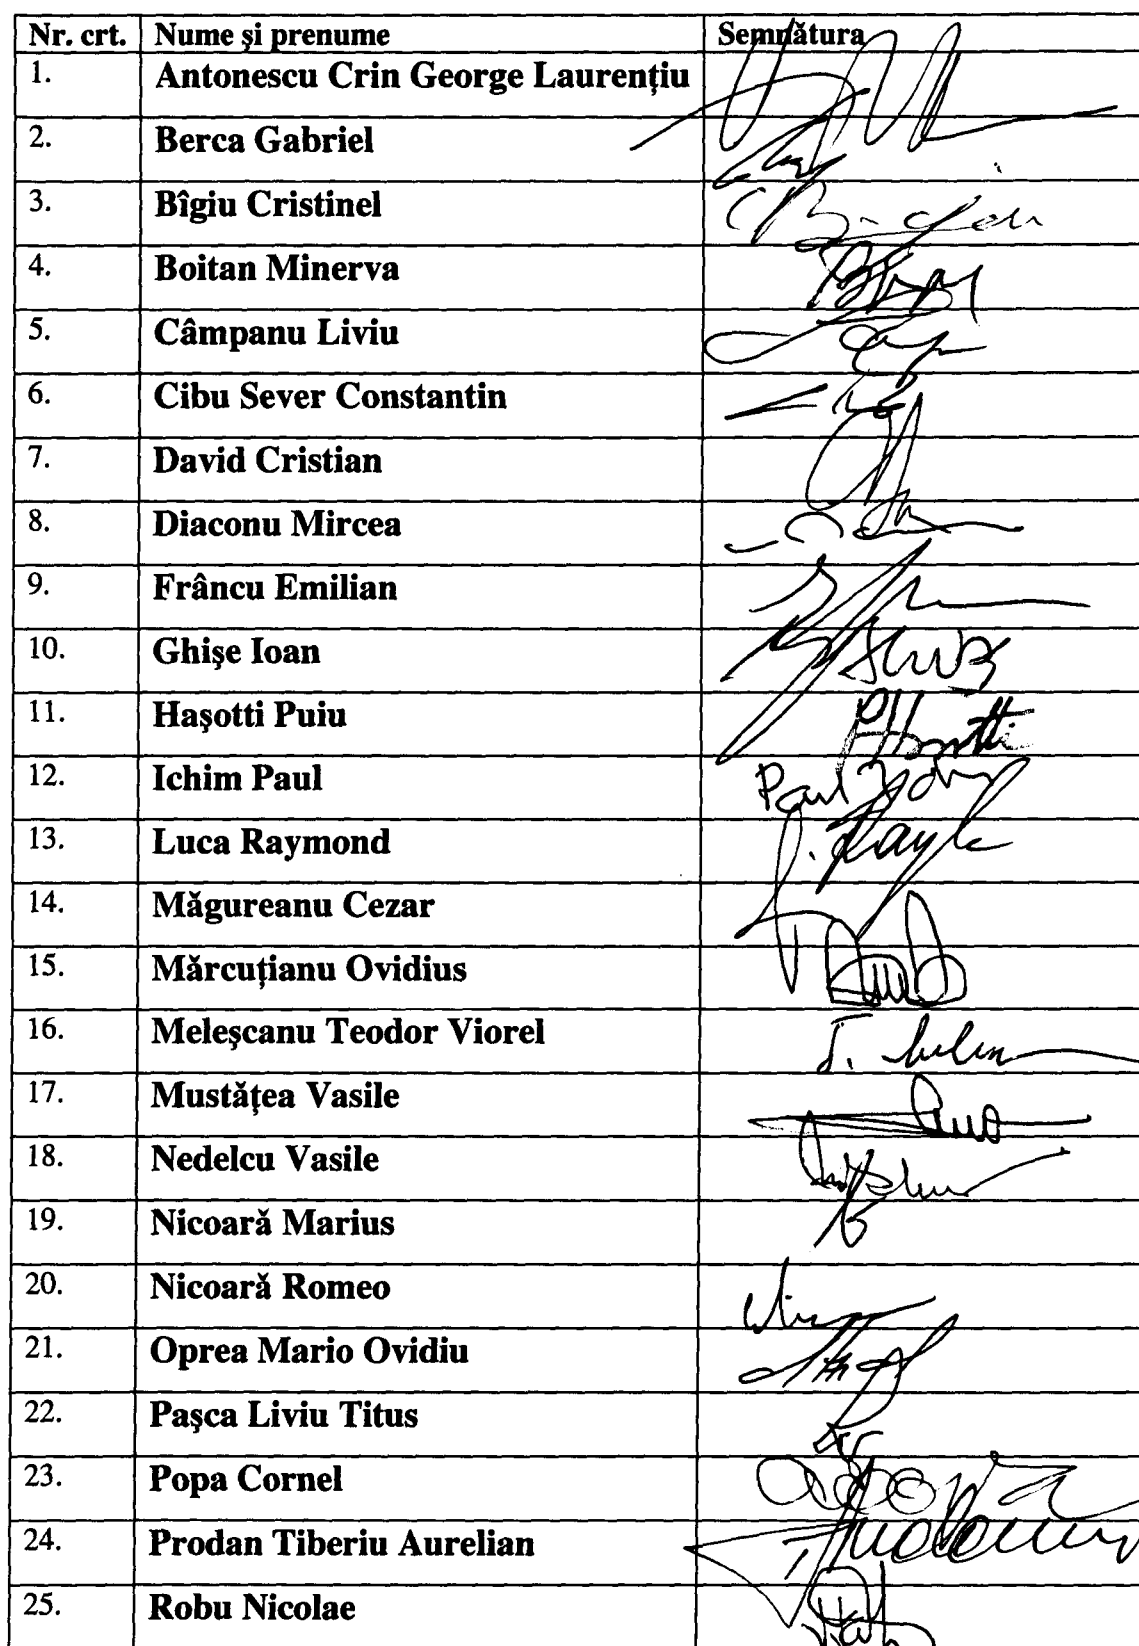 Nr. crt. Nume şi prenume Semnătura
1. Antonescu Crin George Laurenţiu
2. Berca Gabriel
3. Bîgiu Cristinel
4. Boitan Minerva
5. Câmpanu Liviu
6. Cibu Sever Constantin
7. David Cristian
8. Diaconu Mircea
9. Frâncu Emilian
10. Ghişe Ioan
11. Haşotti Puiu
12. Ichim Paul Paul
13. Luca Raymond
14. Măgureanu Cezar
15. Mărcuţianu Ovidius
16. Meleşcanu Teodor Viorel
17. Mustăţea Vasile
18. Nedelcu Vasile
19. Nicoară Marius
20. Nicoară Romeo
21. Oprea Mario Ovidiu
22. Paşca Liviu Titus
23. Popa Cornel
24. Prodan Tiberiu Aurelian
25. Robu Nicolae